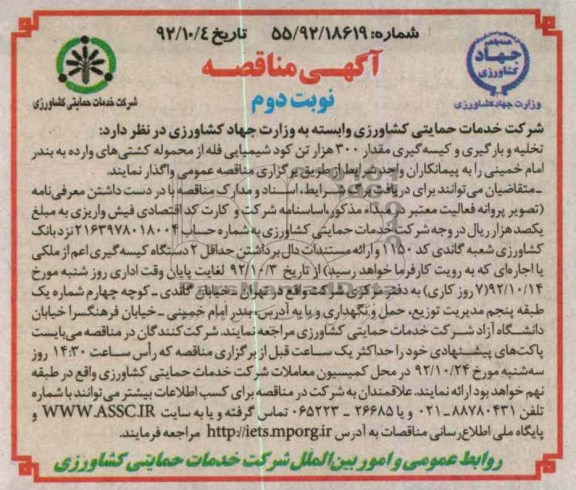 شماره: ۵۵/۹۲/۱۸۶۱۹ تاریخ ۹۲/۱۰/٤
همه با هم
جهاد
کشاورزی
وزارت جهاد کشاورزی
آگهی مناقصه
نوبت دوم
شرکت خدمات حمایتی کشاورزی
شرکت خدمات حمایتی کشاورزی وابسته به وزارت جهاد کشاورزی در نظر دارد:
تخلیه و بارگیری و کیسه گیری مقدار ۳۰۰ هزار تن کود شیمیایی فله از محموله کشتی‌های وارده به بندر
امام خمینی را به پیمانکاران واجد شرایط از طریق برگزاری مناقصه عمومی واگذار نمایند.
ـ متقاضیان می‌توانند برای دریافت برگ شرایط، اسناد و مدارک مناقصه با در دست داشتن معرفی‌نامه
(تصویر پروانه فعالیت معتبر در مبداء مذکور، اساسنامه شرکت و کارت کد اقتصادی فیش واریزی به مبلغ
یکصد هزار ریال در وجه شرکت خدمات حمایتی کشاورزی به شماره حساب ۲۱۶۳۹۷۸۰۱۸۰۰۴ نزد بانک
کشاورزی شعبه گاندی کد ۱۱۵۰ و ارائه مستندات دال بر داشتن حداقل ۲ دستگاه کیسه گیری اعم از ملکی
یا اجاره‌ای که به رویت کارفرما خواهد رسید) از تاریخ ۹۲/۱۰/۳ لغایت پایان وقت اداری روز شنبه مورخ
۹۲/۱۰/۱۴ (۷ روز کاری) به دفتر مرکزی شرکت واقع در تهران ـ خیابان گاندی ـ کوچه چهارم شماره یک
طبقه پنجم مدیریت توزیع، حمل و نگهداری و یا به آدرس، بندر امام خمینی ـ خیابان فرهنگسرا خیابان
دانشگاه آزاد شرکت خدمات حمایتی کشاورزی مراجعه نمایند. شرکت کنندگان در مناقصه می‌بایست
پاکت‌های پیشنهادی خود را حداکثر یک ساعت قبل از برگزاری مناقصه که رأس ساعت ۱۴:۳۰ روز
سه‌شنبه مورخ ۹۲/۱۰/۲۴ در محل کمیسیون معاملات شرکت خدمات حمایتی کشاورزی واقع در طبقه
نهم خواهد بود ارائه نمایند. علاقمندان به شرکت در مناقصه برای کسب اطلاعات بیشتر می‌توانند با شماره
تلفن ۸۸۷۸۰۴۳۱ ـ ۰۲۱ و یا ۲۶۶۸۵ ـ ۰۶۵۲۲۳ تماس گرفته و یا به سایت WWW.ASSC.IR و
پایگاه ملی اطلاع‌رسانی مناقصات به آدرس http://iets.mporg.ir مراجعه فرمایند.
روابط عمومی و امور بین الملل شرکت خدمات حمایتی کشاورزی